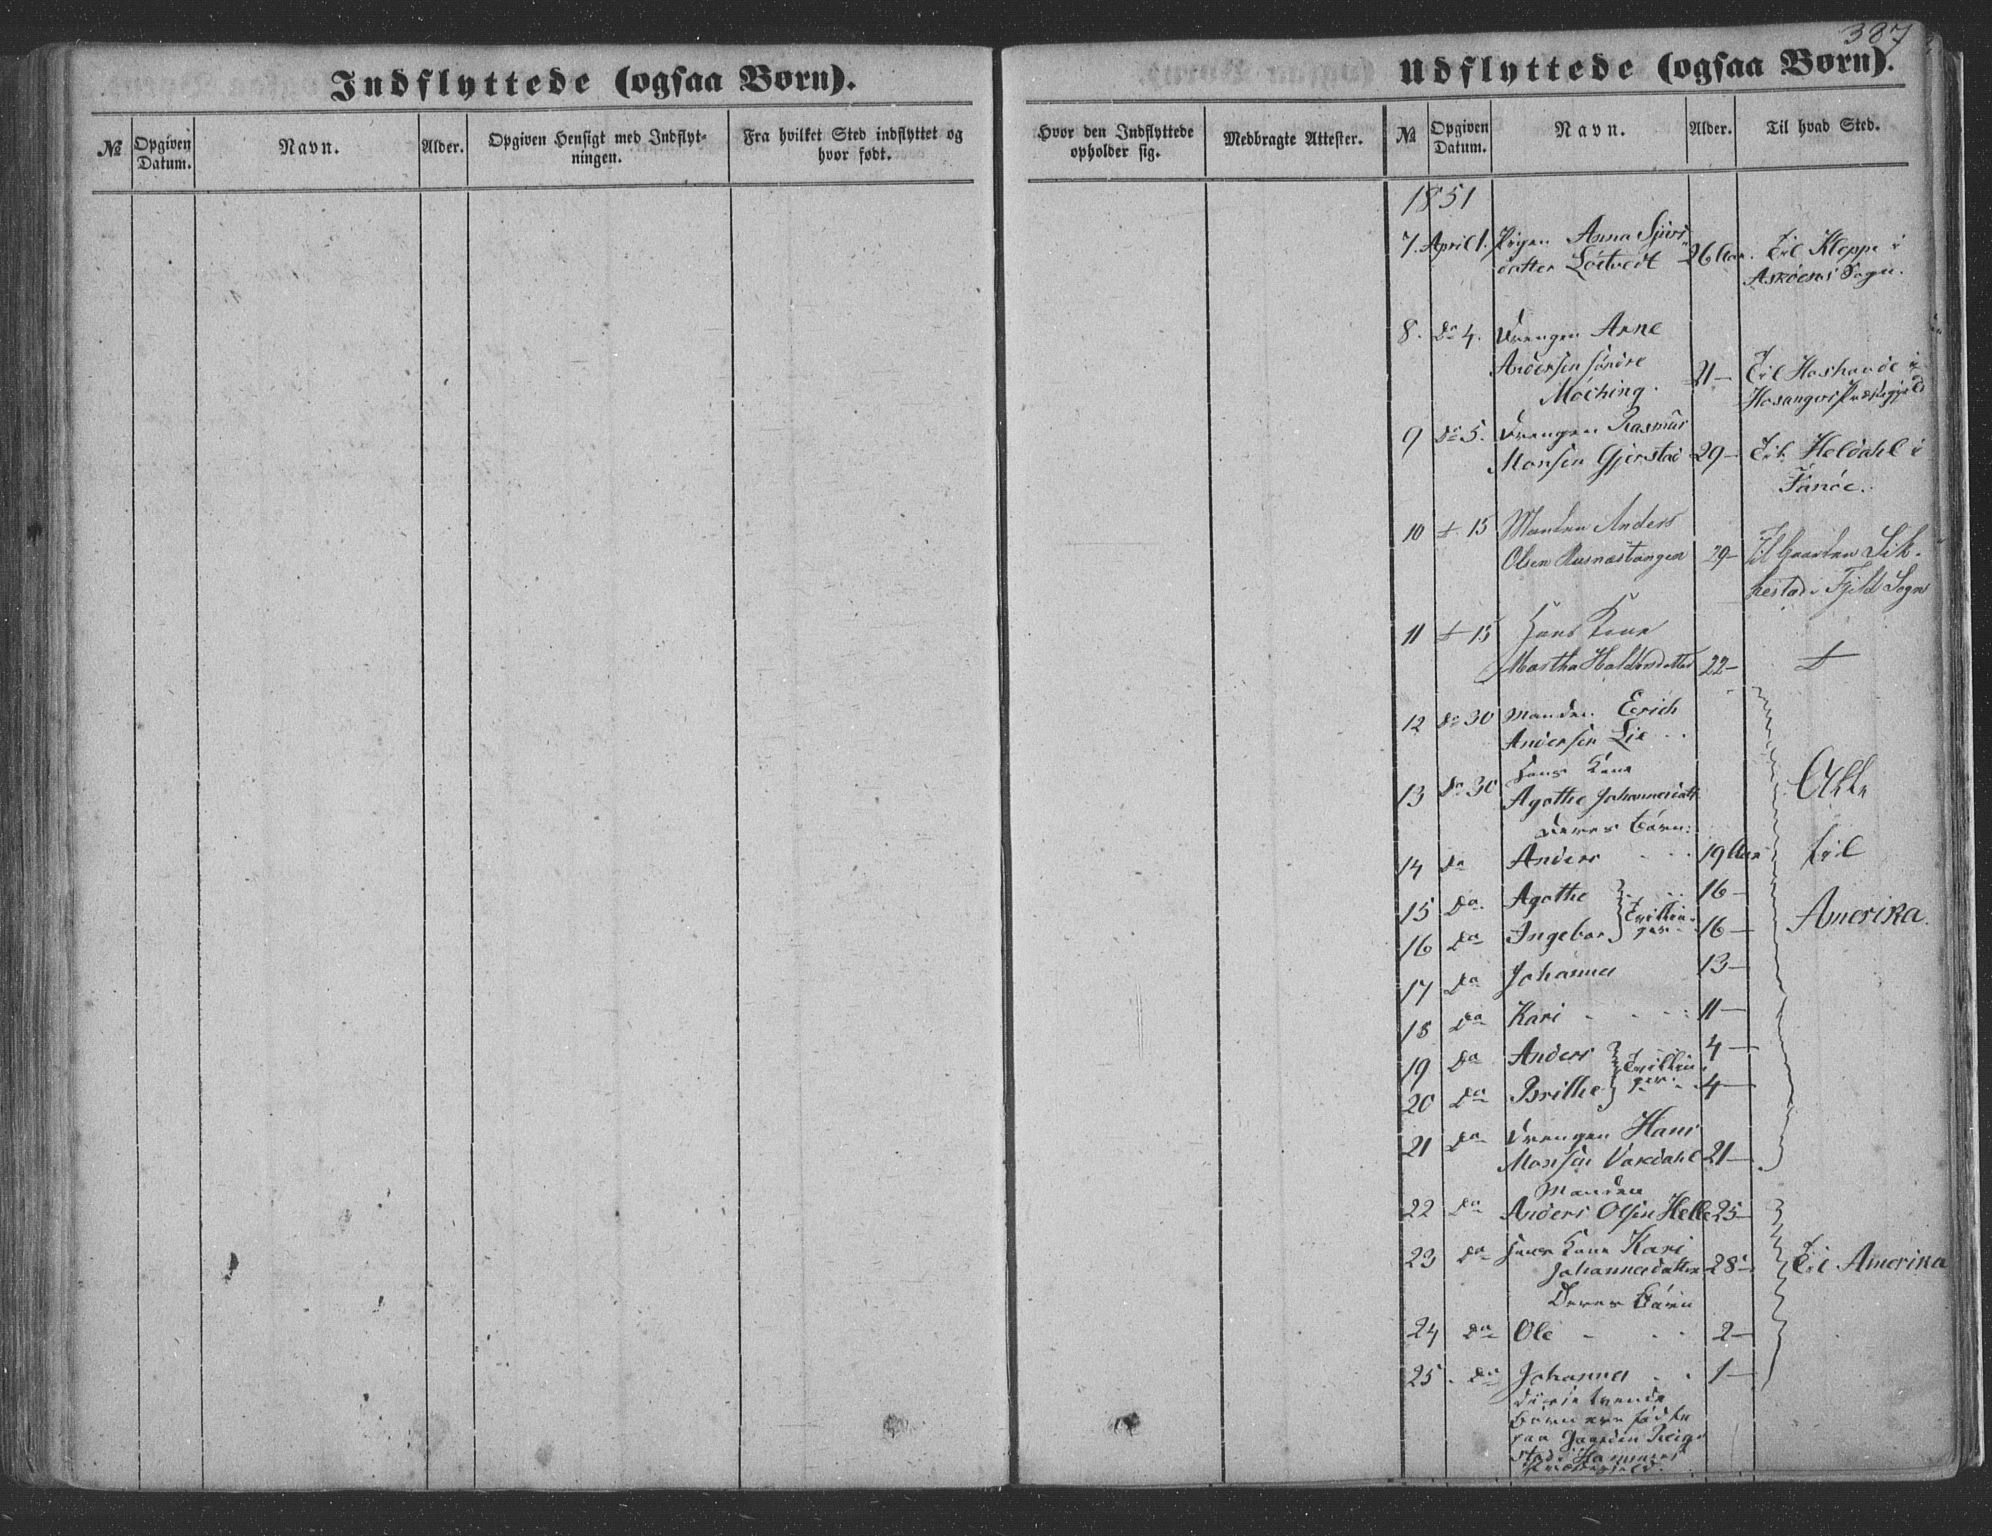 387
Indflyttede (ogsaa Børn).
Udflyttede (ogsaa Børn).
№ Opgiven Datum. Navn. Alder. Opgiven Hensigt med Indflytningen. Fra hvilket Sted indflyttet og hvor født.
Hvor den Indflyttede opholder sig. Medbragte Attester. № Opgiven Datum. Navn. Alder. Til hvad Sted.
1851
7. April 1. Pigen Anna Sjurs
datter Løtvedt 26 Aar. Til Kleppe i
Askøens Sogn.
8. Do 4. Drengen Arne
Andersen søndre
21 — Til
Hosangers Præstegjeld
9 Do 5. Drengen Rasmus
Monsen Gjerstad 29 — Til Holdahl i
Fanøe.
10 15 Manden Anders
Olsen Rusnæstangen 29 — Til Gaarden
i Fjeld Sogn
11 15 Hans Kone
Martha Haldorsdatter 22 —
12 Do 30 Manden Erich
Andersen Lie
13 Do 30 Hans Kone
Agathe Johannesdatt.
Deres Børn:
Alle
14 Do Anders 19 Aar til
15 Do Agathe Tvillin- 16 —
16 Do Ingebor ger 16 — Amerika.
17 Do Johannes 13 —
18 Do Kari 11 —
19 Do Anders Tvillin- 4 —
20 Do Brithe ger. 4 —
21 Do Drengen Hans
Monsen Vaxdahl 21 —
Manden
22 Do Anders Olsen Helle 25 —
23 Do Hans Kone Kari
Johannesdatter 28 — Til Amerika
Deres Børn
24 Do Ole 2 —
25 Do Johannes 1 —
Disse tvende
Børn ere fødte
paa Gaarden
stad i Hammers
Præstegjeld.